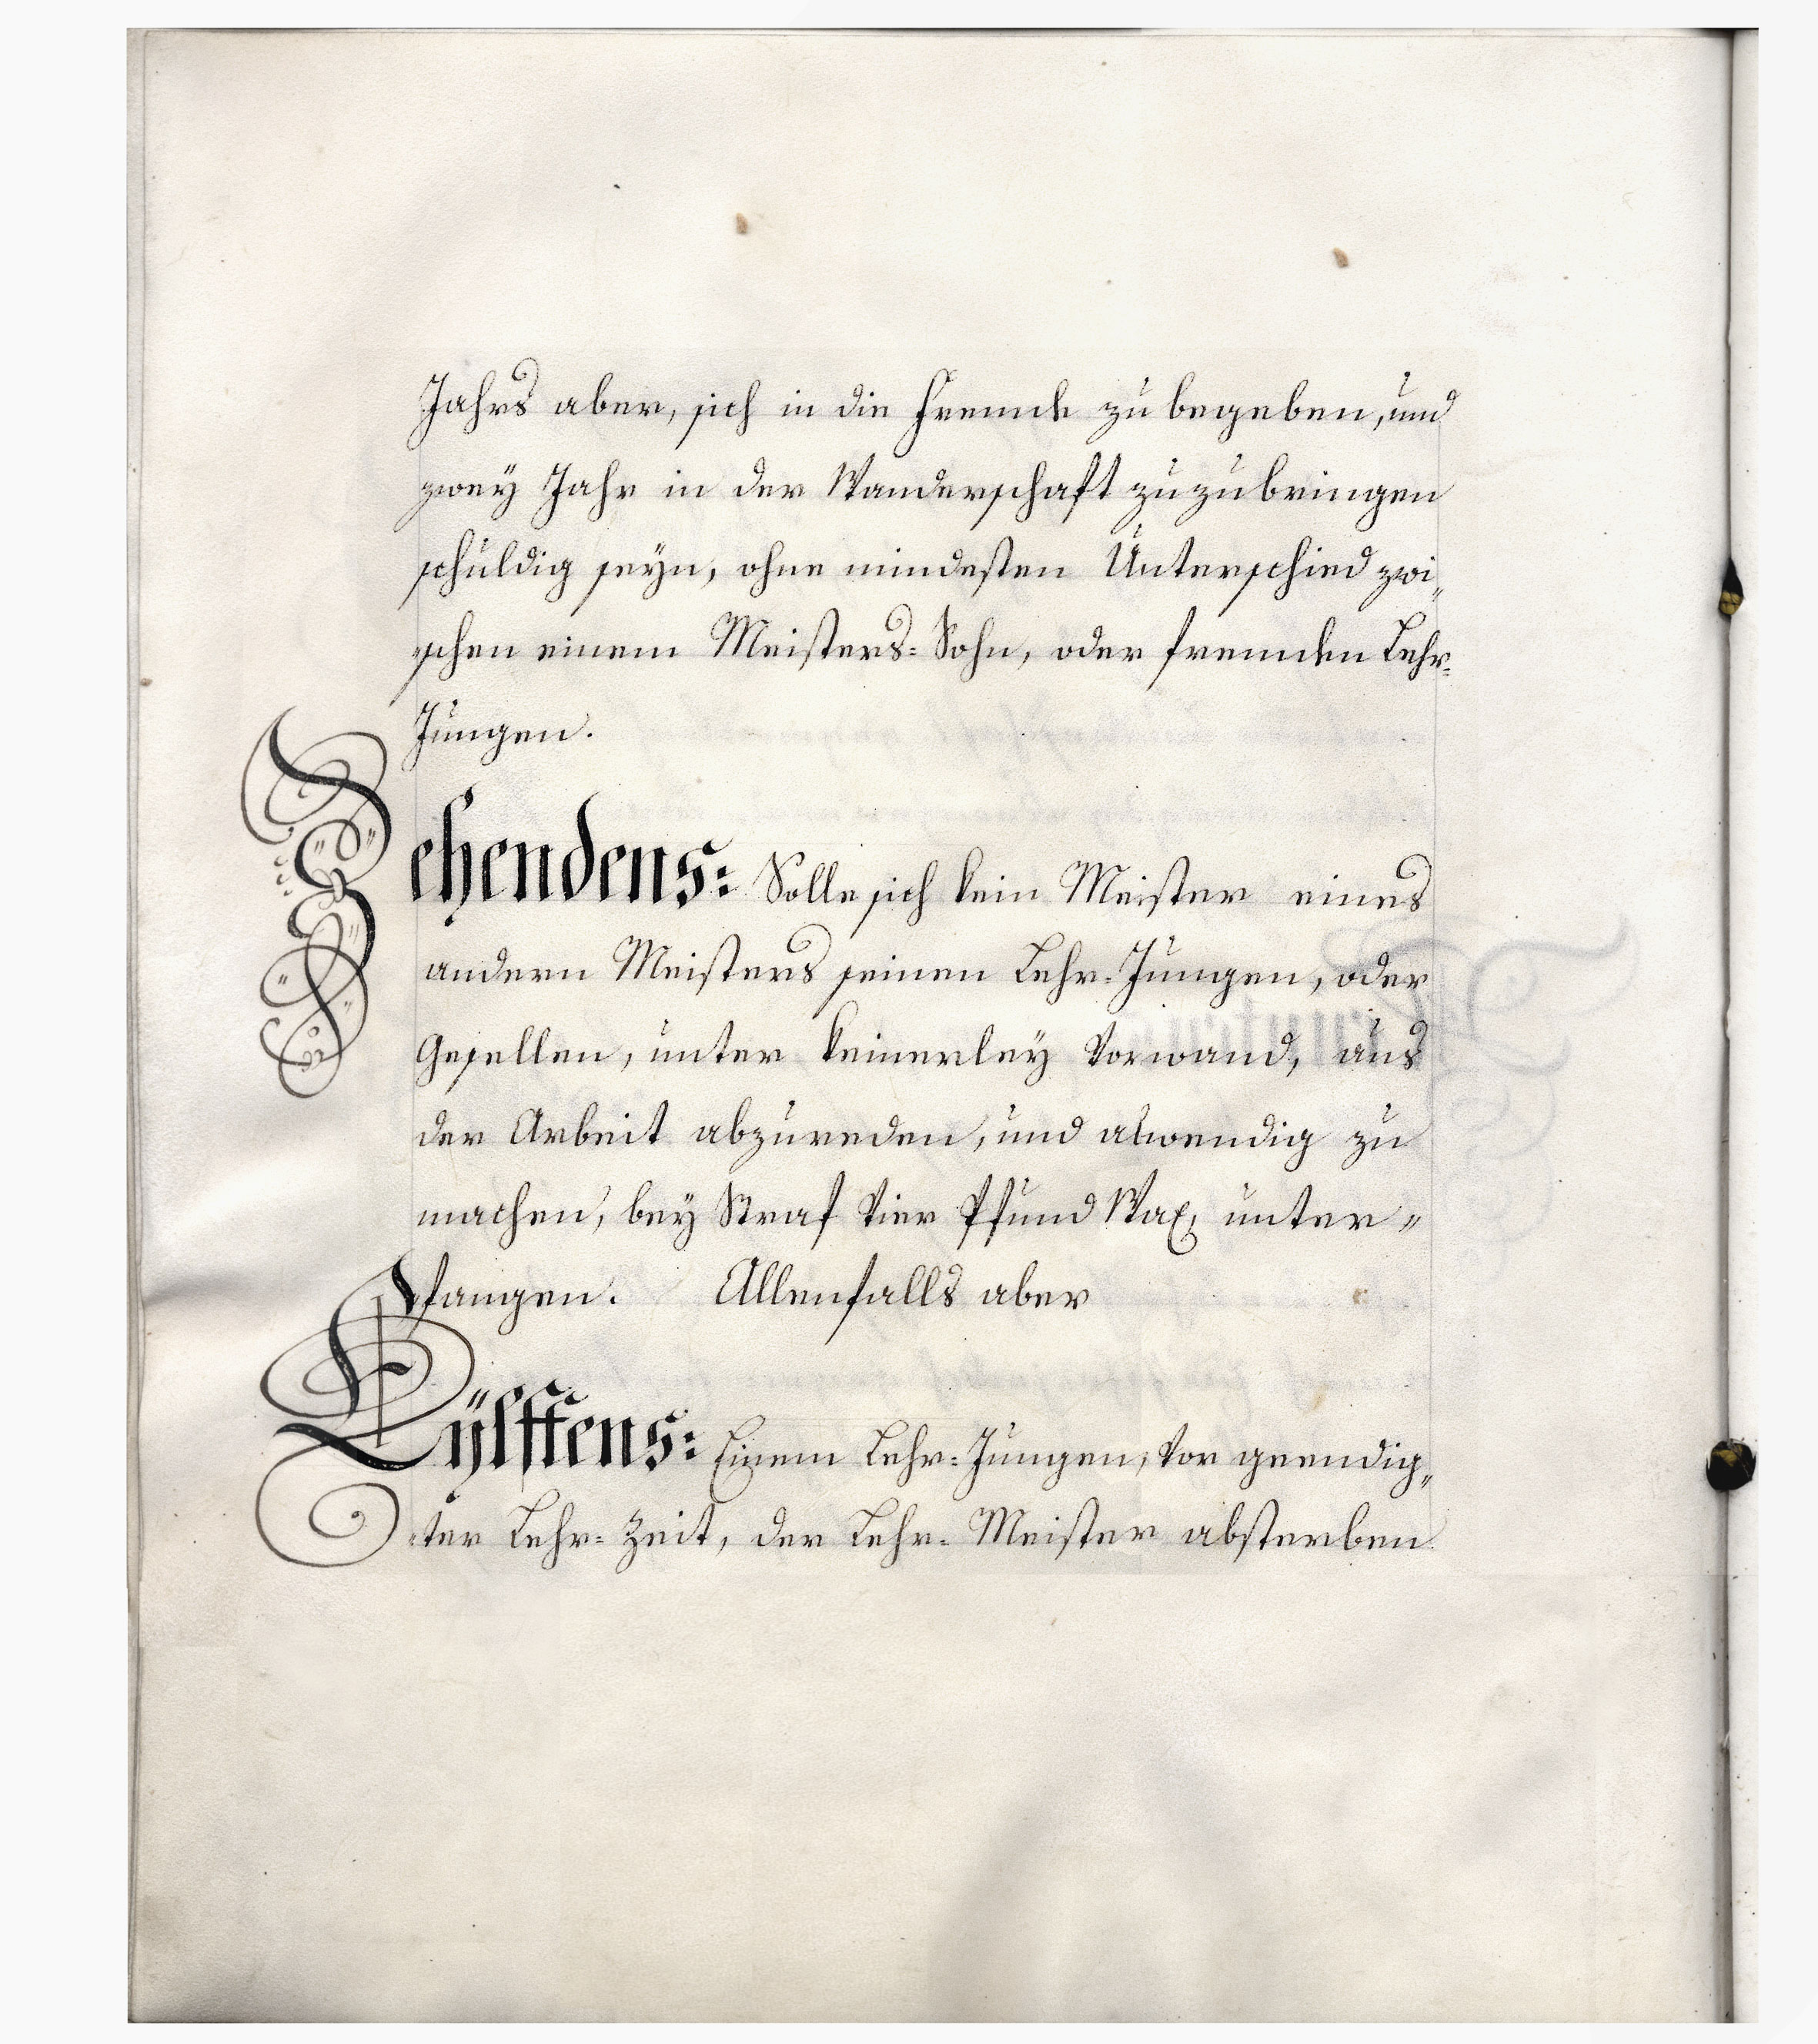 Jahrs aber, sich in die Fremde zu begeben, und
zwey Jahr in der Wanderschaft zuzubringen
schuldig seyn, ohne mindesten Unterschied zwi„
„schen einem Meisters=Sohn, oder fremden Lehr=
Jungen.
Zehendens: Solle sich kein Meister eines
andern Meisters seinen Lehr=Jungen, oder
Gesellen, unter keinerley Vorwand, aus
der Arbeit abzureden, und abwendig zu
machen, bey Straf Vier Pfund Wax, unter„
„fangen. Allenfalls aber
Eÿlfftens: Einem Lehr=Jungen, vor geendig„
„ter Lehr=Zeit, der Lehr=Meister absterben